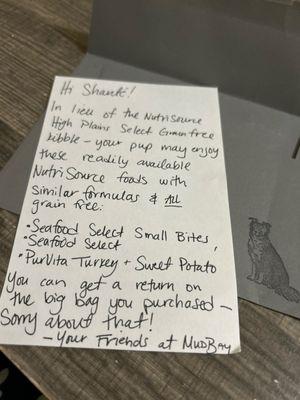 Hi Shanti!
In lieu of the NutriSource
High Plains Select Grain free
kibble - your pup may enjoy
these readily available
NutriSource foods with
similar formulas & all
grain free:
• Seafood Select Small Bites,
• Seafood Select
• PurVita Turkey + Sweet Potato
You can get a return on
the big bag you purchased -
Sorry about that!
- Your Friends at MudBay